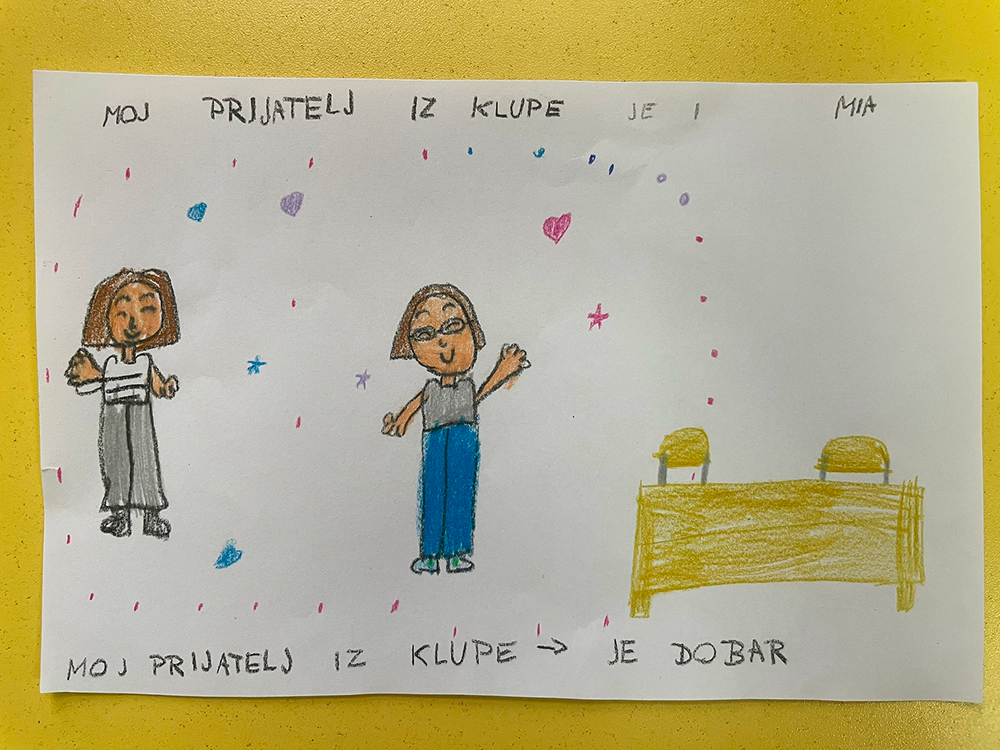 MOJ PRIJATELJ IZ KLUPE JE I MIA
MOJ PRIJATELJ IZ KLUPE → JE DOBAR